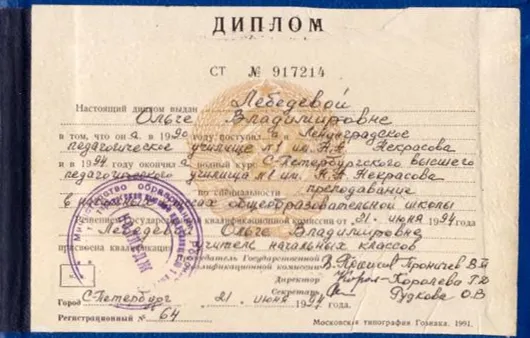 ДИПЛОМ
СТ № 917214
Настоящий диплом выдан Лебедевой
Ольге Владимировне
в том, что он а в 1990 году поступил а в Ленинградское
педагогическое училище №1 им. Н.А. Некрасова
и в 1994 году окончил а полный курс С-Петербургского высшего
педагогического училища №1 им. Н.А. Некрасова
по специальности преподавание
в начальных классах общеобразовательной школы
Решением Государственной квалификационной комиссии от 21 июня 1994 года
Лебедевой Ольге Владимировне
присвоена квалификация учителя начальных классов
Председатель Государственной
квалификационной комиссии Проничев В.П
Директор Королева Г.Ю
Секретарь Рудкова О.В
Город С-Петербург 21 июня 1994 года.
Регистрационный № 64
Московская типография Гознака. 1991.